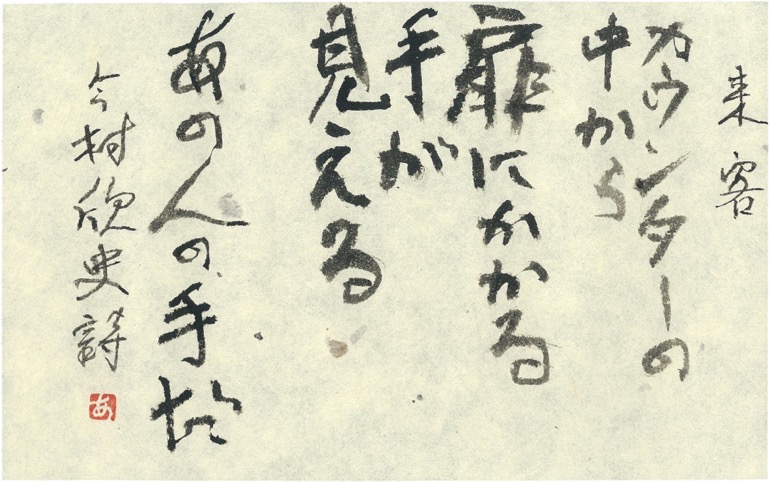 来客
カウンターの
中から
扉にかかる
手が
見える
あの人の手だ
今村欣史詩
あ